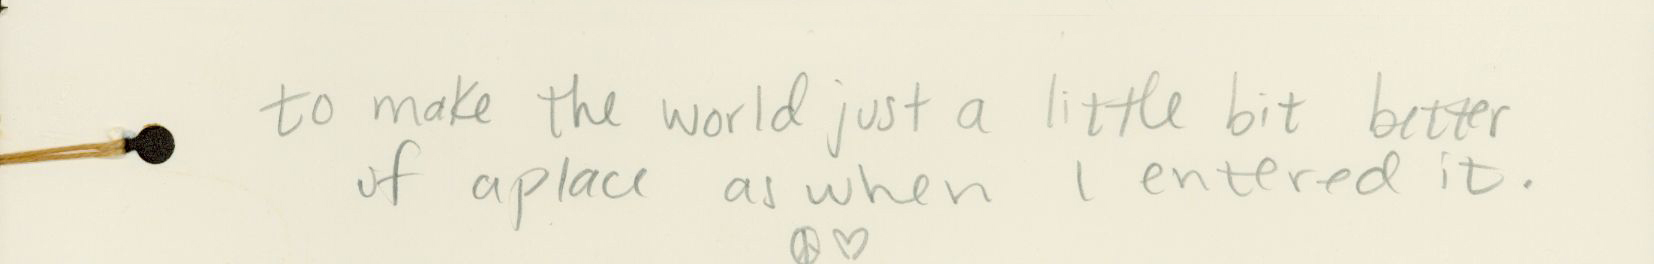 to make the world just a little bit better
of a place as when I entered it.